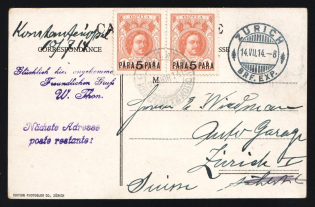 Konstantinopel
CORRESPONDANCE
PARA 5 PARA
PARA 5 PARA
ZÜRICH
14.VII.14.-8
BRF. EXP.
Glücklich hier angekommen
Freundlichen Gruß
W. Thon.
Nächste Adresse
poste restante!
Herrn E. Wiedmann
Auto Garage
Zürich I
Suisse
EDITION PHOTOGLOB CO., ZÜRICH